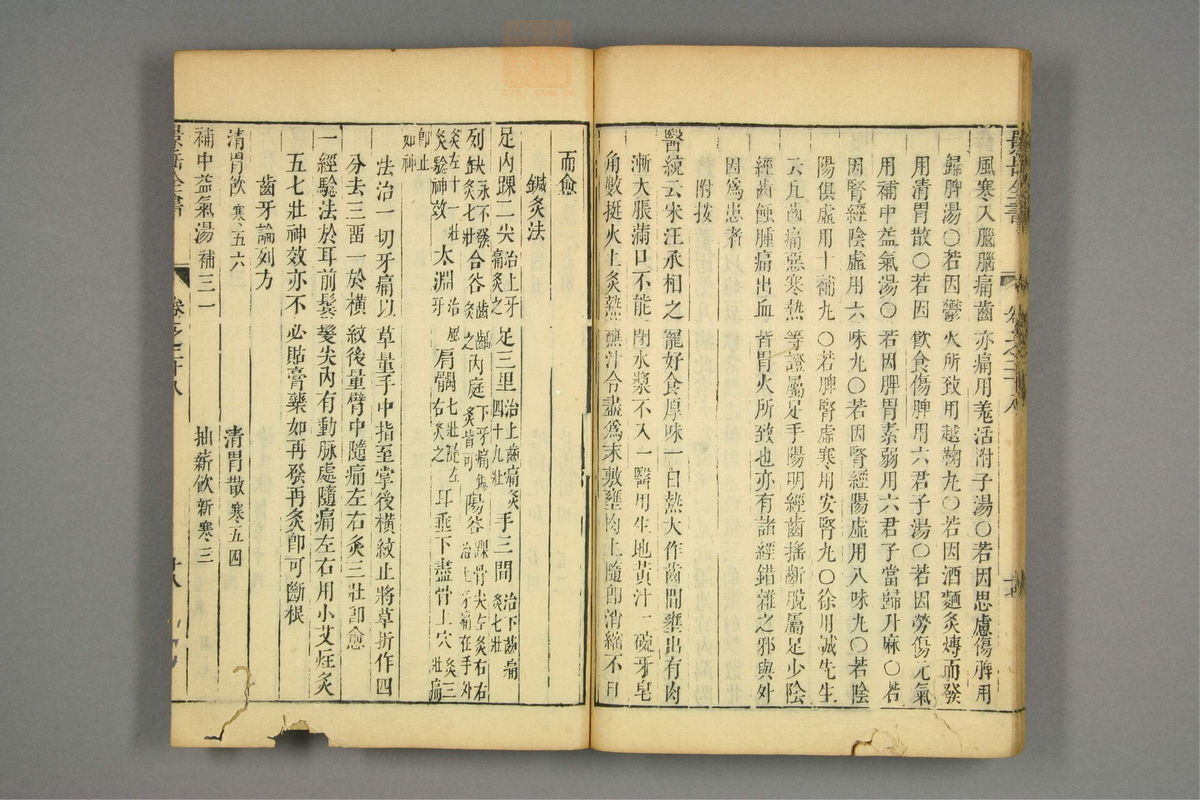 風寒入腦腦痛齒亦痛用羗活附子湯〇若因思慮傷脾用
歸脾湯〇若因鬱火所致用越鞠丸〇若因酒麵炙煿而發
用清胃散〇若因飲食傷脾用六君子湯〇若因勞傷元氣
用補中益氣湯〇若因脾胃素弱用六君子當歸升麻〇若
因腎經陰虛用六味丸〇若因腎經陽虛用八味丸〇若陰
陽俱虛用十補丸〇若脾腎虛寒用安腎丸〇徐用誠先生
云凡齒痛惡寒熱等證屬足手陽明經齒搖斷脫屬足少陰
經齒蝕腫痛出血皆胃火所致也亦有諸經錯雜之邪與外
因爲患者
附按
醫統云宋汪丞相之寵好食厚味一日熱大作齒間壅出有肉
漸大脹滿口不能閉水漿不入一醫用生地黃汁一碗牙皂
角數挺火上炙熱蘸汁令盡爲末敷壅肉上隨即消縮不日
景岳全書 卷之二十八
而愈
鍼灸法
足內踝二尖治上牙痛灸之 足三里治上齒痛灸四十九壯 手三間治下齒痛灸七壯
列缺灸七壯永不發 合谷齒齲灸之 內庭下牙痛灸皆可 陽谷踝骨尖左灸右右灸左十一壯
太淵牙風治灸驗神效 肩髃七壯隨左右灸之 耳垂下盡骨上穴灸三壯痛即止如神
法治一切牙痛以草量手中指至掌後橫紋止將草折作四
分去三留一於橫紋後量臂中隨痛左右灸三壯即愈
一經驗法於耳前鬢髮尖內有動脉處隨痛左右用小艾炷灸
五七壯神效亦不必貼膏藥如再發再灸即可斷根
齒牙論列方
清胃飲寒五六 清胃散寒五四
補中益氣湯補三一 抽薪飲新寒三
景岳全書 卷之二十八 十八